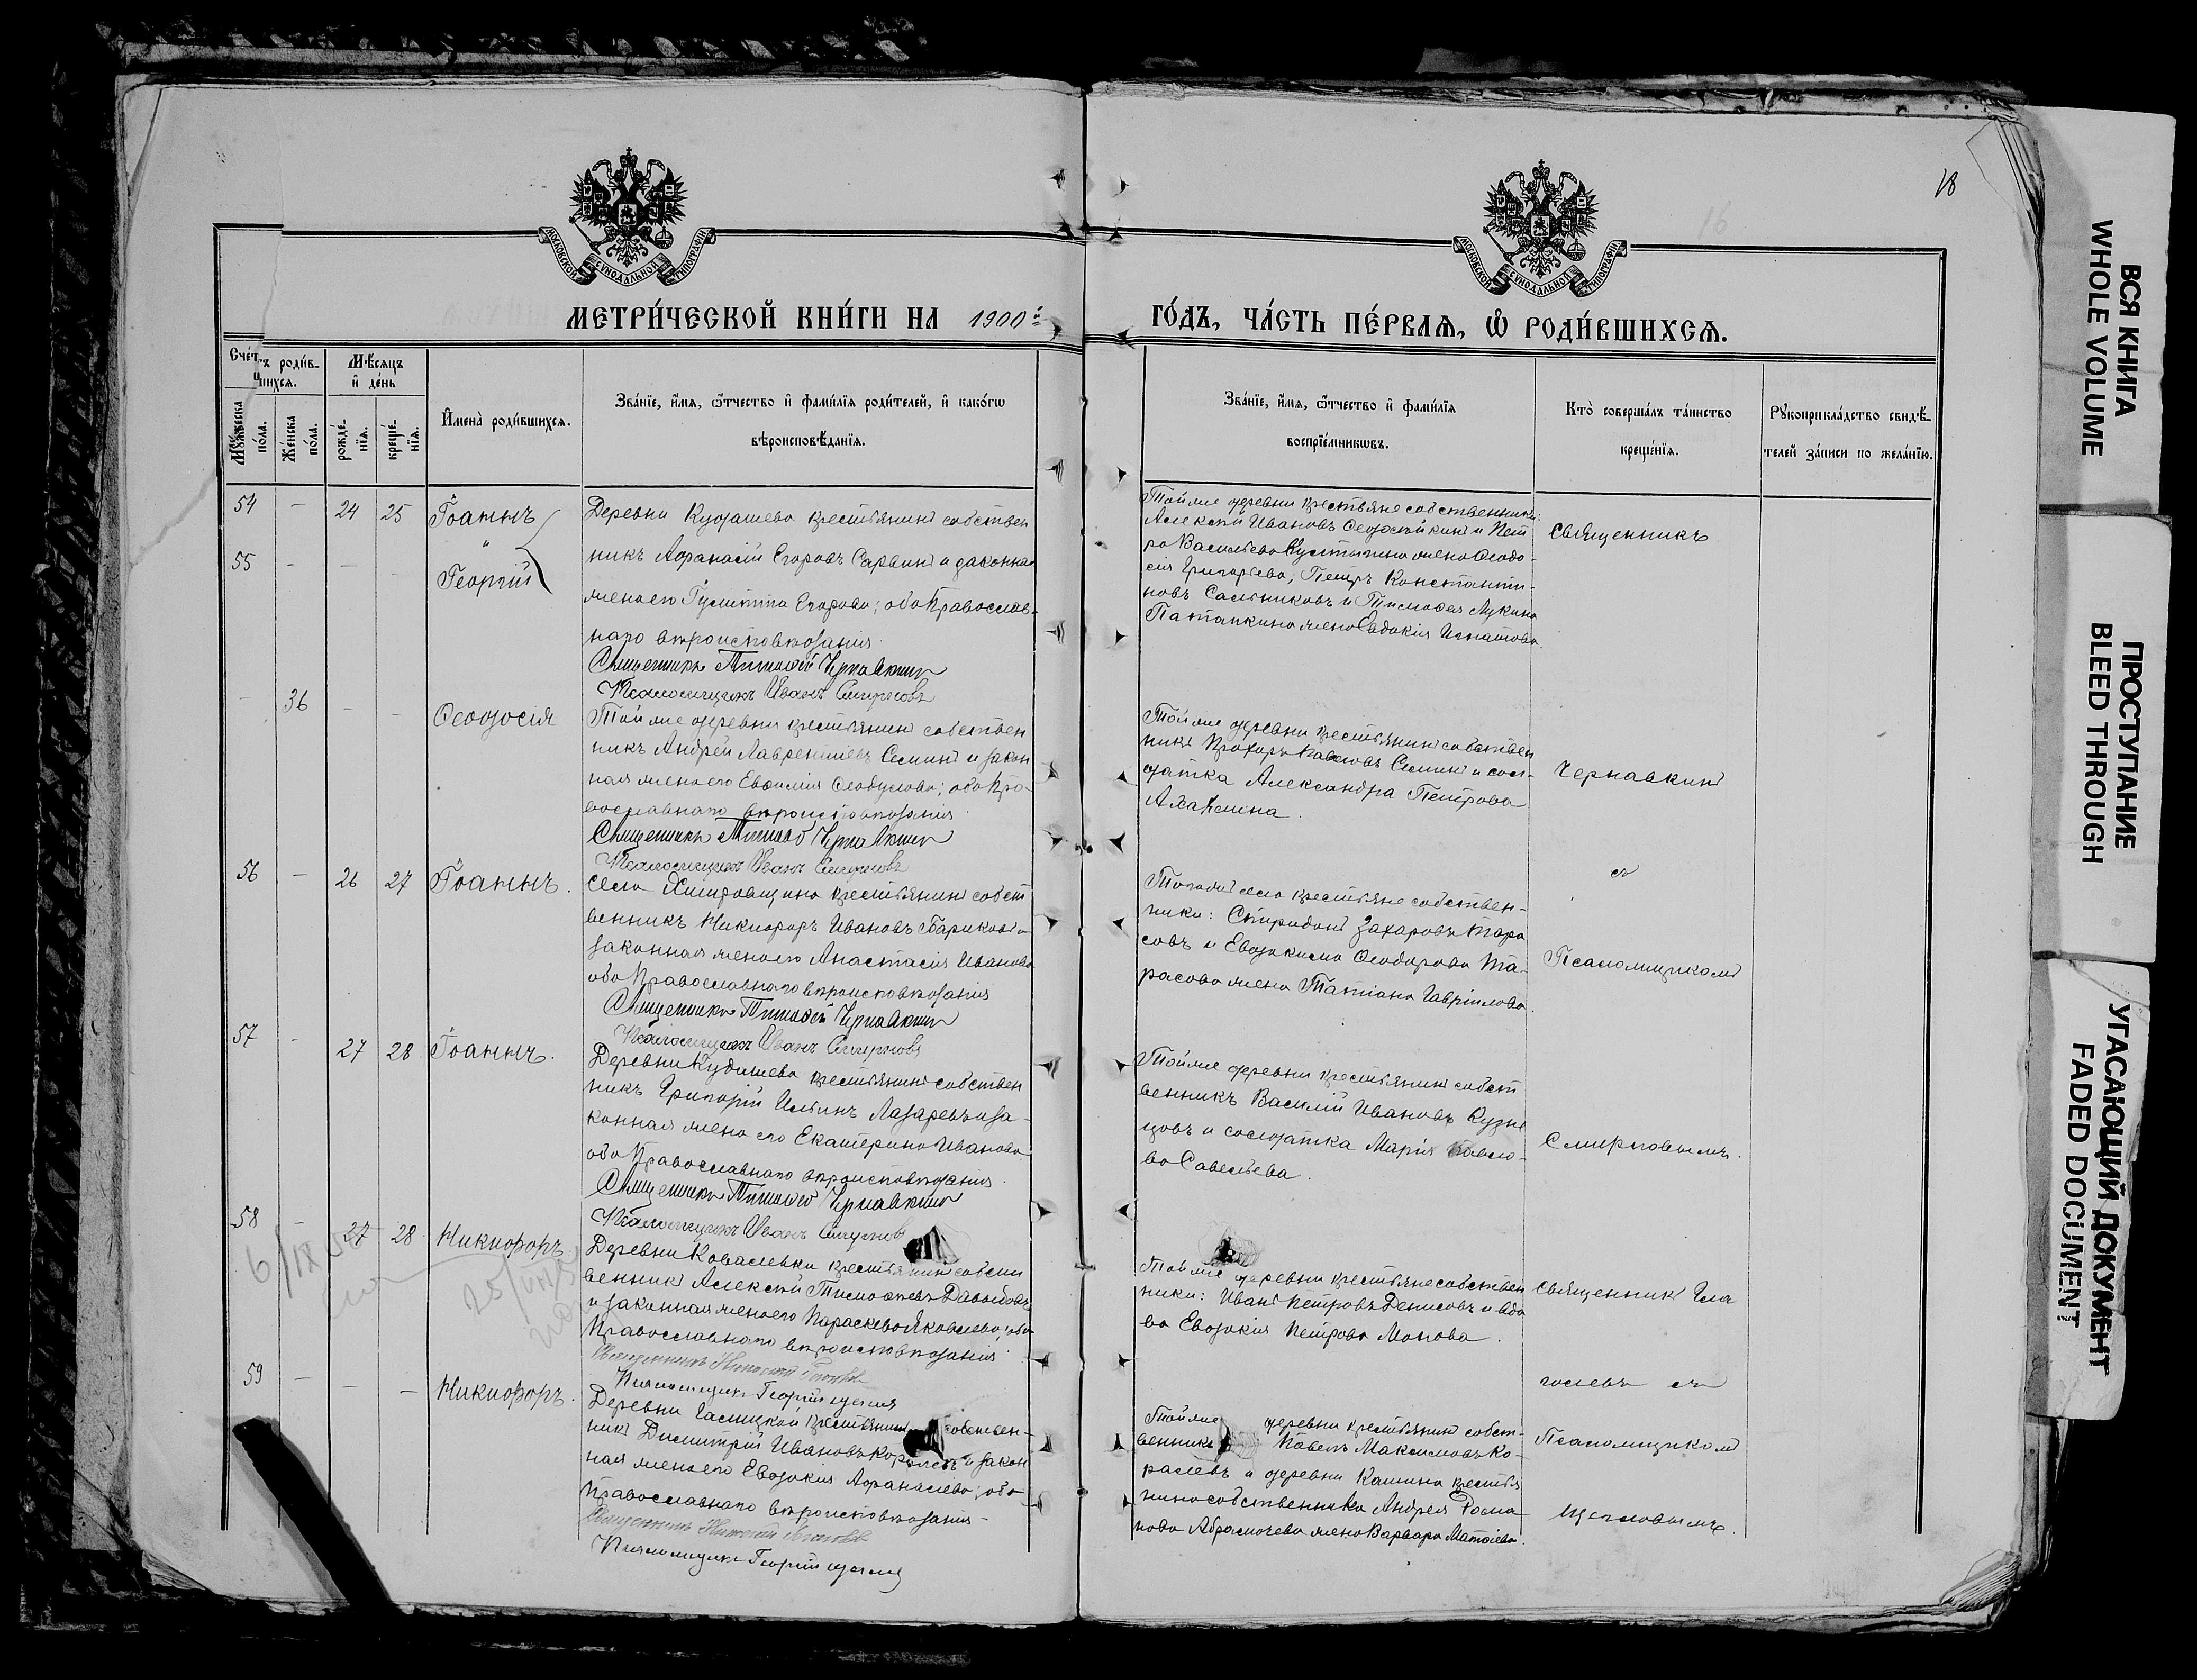 18
16
МОСКОВСКОЙ СѴНОДАЛЬНОЙ ТИПОГРАФІИ
МОСКОВСКОЙ СѴНОДАЛЬНОЙ ТИПОГРАФІИ
МЕТРИ́ЧЕСКОЙ КНИ́ГИ НА 1900й
ГО́ДЪ, ЧА́СТЬ ПЕ́РВАѦ, Ѡ҆ РОДИ́ВШИХСѦ.
Сче́тъ роди́вшихсѧ.
Мꙋ́жеска по́ла.
Же́нска по́ла.
Мѣ́сѧцъ и҆ де́нь
рожде́нїѧ.
креще́нїѧ.
И҆мена̀ роди́вшихсѧ.
Зва́нїе, и҆́мѧ, ѻ҆́тчество и҆ фами́лїѧ роди́телей, и҆ како́гѡ
вѣроисповѣ́данїѧ.
Зва́нїе, и҆́мѧ, ѻ҆́тчество и҆ фами́лїѧ
воспрїе́мникѡвъ.
Кто̀ соверша́лъ та́инство
креще́нїѧ.
Рꙋкоприкла́дство свидѣ́-
телей за́писи по жела́нїю.
54 - 24 25 Іоаннъ
55 - - - Георгій
Деревни Кудашева крестьянинъ собствен
никъ Афанасій Егоровъ Сарвинъ и законная
жена его Егорова; оба Православ-
наго вѣроисповѣданія.
Священникъ Тимоѳей Чернавкинъ
Псаломщикъ Иванъ Смирновъ
Той же деревни крестьяне собственники:
Алексѣй Ивановъ и Пет
ра Васильева жена Ѳеодо-
сія Григорьева; Петръ Константи-
новъ Сальниковъ и Тимоѳея Лукина
Патапкина жена Евдокія Игнатова.
Священникъ
- 36 - - Ѳеодосія
Той же деревни крестьянинъ собствен
никъ Андрей Лаврентьевъ Семинъ и закон
ная жена его Евѳимія Ѳеодулова; оба Пра-
вославнаго вѣроисповѣданія.
Священникъ Тимоѳей Чернавкинъ
Псаломщикъ Иванъ Смирновъ
Той же деревни крестьянинъ собствен
никъ Прохоръ Павловъ Семинъ и сол-
датка Александра Петрова
Чернавкинъ
56 - 26 27 Іоаннъ.
Села крестьянинъ собст
венникъ Никифоръ Ивановъ Бариковъ и
законная жена его Анастасія Иванова
оба Православнаго вѣроисповѣданія
Священникъ Тимоѳей Чернавкинъ
Псаломщикъ Иванъ Смирновъ
Того же села крестьяне собствен-
ники: Спиридонъ Захаровъ Тара
совъ и Евдокима Ѳеодорова Та-
расова жена Татіана Гавріилова
съ
Псаломщикомъ
57 - 27 28 Іоаннъ.
Деревни Кудашева крестьянинъ собствен
никъ Григорій Ильинъ Лазаревъ и за-
конная жена его Екатерина Иванова
оба Православнаго вѣроисповѣданія.
Священникъ Тимоѳей Чернавкинъ
Псаломщикъ Иванъ Смирновъ
Той же деревни крестьянинъ собст
венникъ Василій Ивановъ Кузне
цовъ и солдатка Марія Павло-
ва Савельева.
Смирновымъ.
58 - 27 28 Никифоръ.
Деревни Ковалевки крестьянинъ собст
венникъ Алексѣй Тимоѳеевъ Давыдовъ
и законная жена его Параскева Яковлева; оба
Православнаго вѣроисповѣданія.
Псаломщикъ Георгій
Той же деревни крестьяне собствен
ники: Иванъ Петровъ Денисовъ и вдо
ва Евдокія Петрова Монова.
Священникъ Гла
59 - - - Никифоръ.
Деревни крестьянинъ собствен-
никъ Димитрій Ивановъ Королевъ и закон
ная жена его Евдокія Афанасьева; оба
Православнаго вѣроисповѣданія -
Псаломщикъ Георгій
Той же деревни крестьянинъ собст-
венникъ Павелъ Максимовъ Ко-
ралевъ и деревни Кашина крестья
нина собственника Андрея Рома
нова жена Варвара Матѳіева.
голевъ съ
Псаломщикомъ
Щегловымъ.
ВСЯ КНИГА
WHOLE VOLUME
ПРОСТУПАНИЕ
BLEED THROUGH
УГАСАЮЩИЙ ДОКУМЕНТ
FADED DOCUMENT